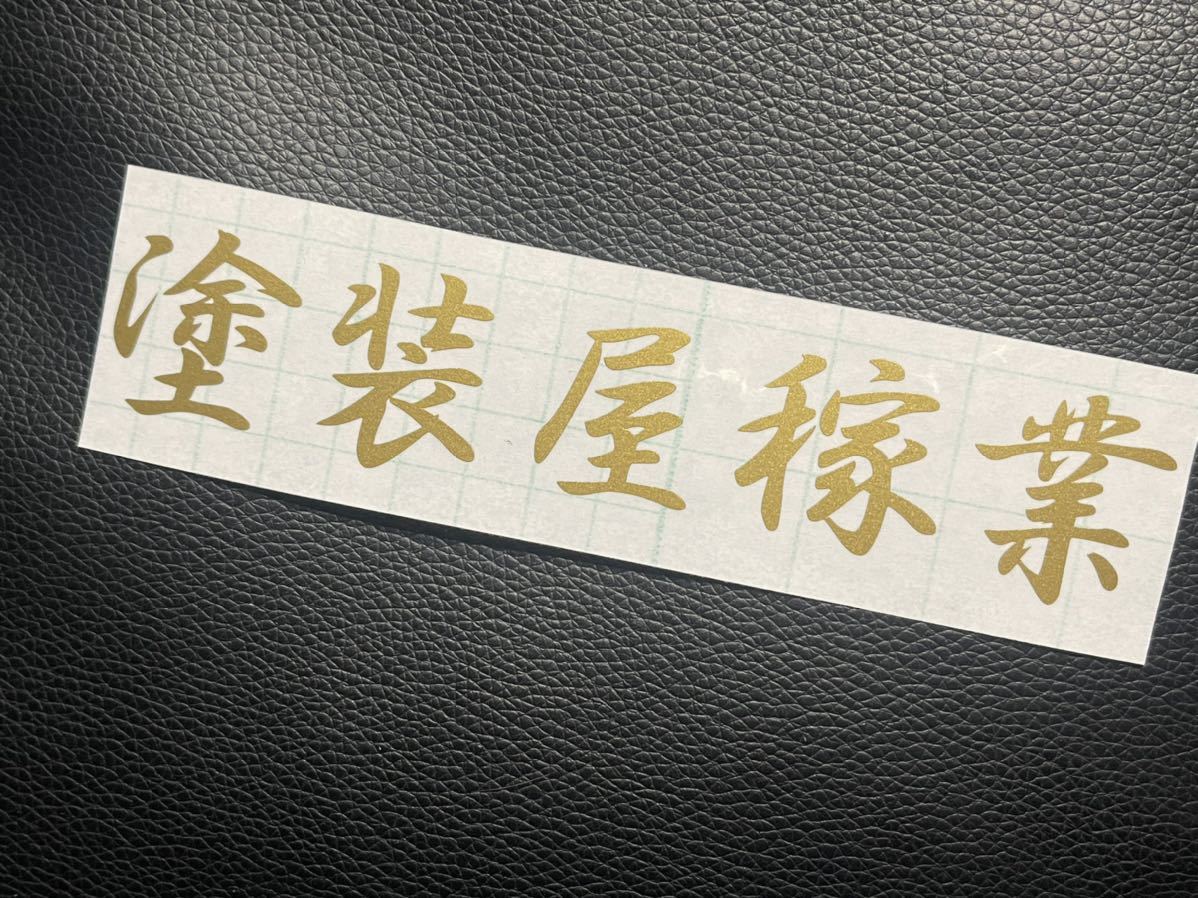 塗装屋稼業